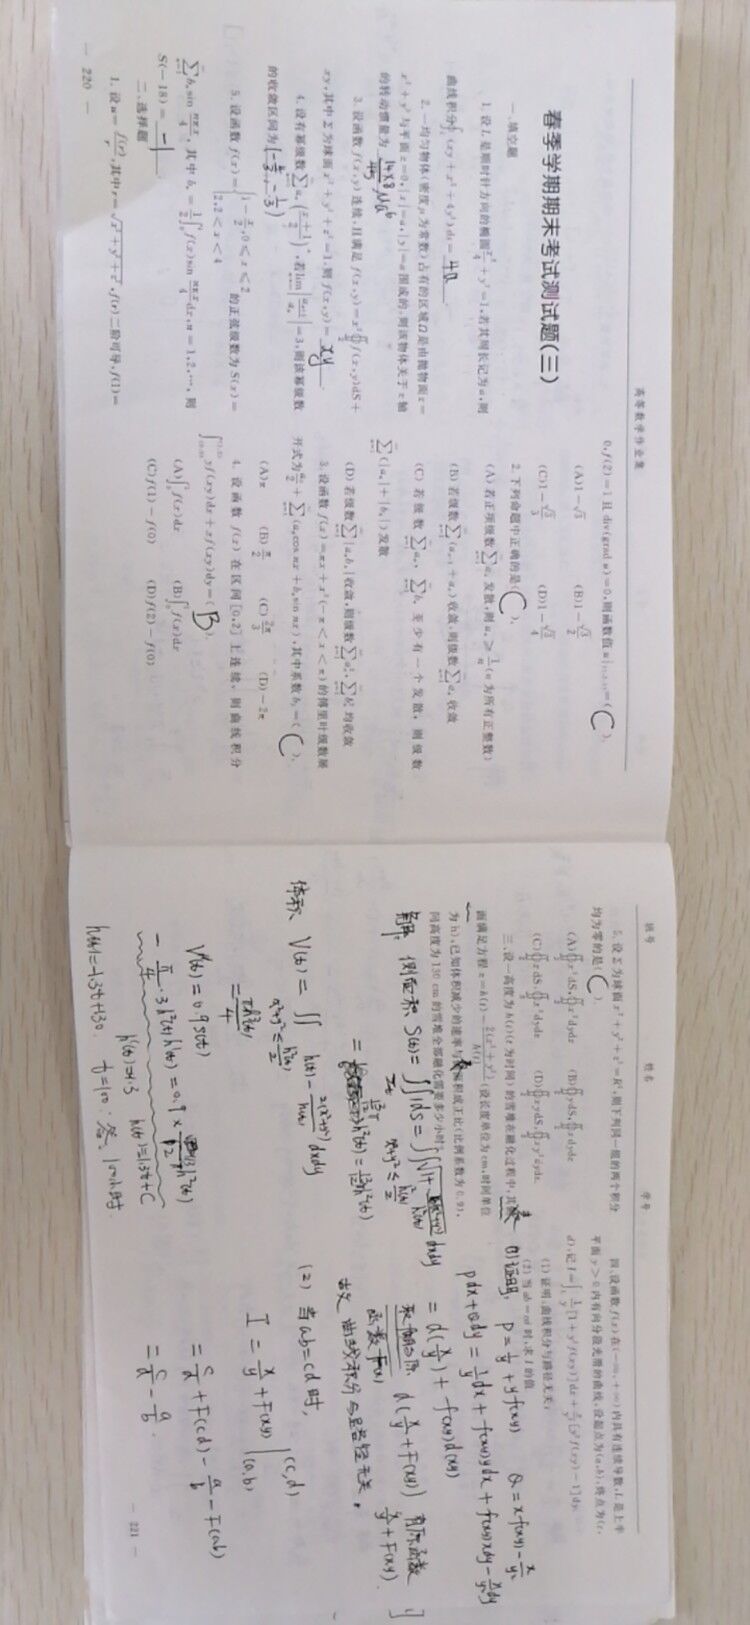 高等数学作业集
春季学期期末考试测试题(三)
一、填空题
1. 设L是顺时针方向的椭圆x²/4+y²=1,若其周长记为a,则
曲线积分∮_L(xy+x²+4y²)ds= 4a .
2. 一均匀物体(密度μ为常数)占有的区域Ω是由抛物面z=
x²+y²与平面z=0,|x|=a,|y|=a围成的,则该物体关于z轴
的转动惯量为 (14×8)/45 μa⁶
3. 设函数f(x,y)连续,且满足f(x,y)=x²∯_Σ f(x,y)dS+
xy,其中Σ为球面x²+y²+z²=1,则f(x,y)= xy
4. 设有幂级数∑aₙ((x+1)/2)ⁿ,若lim|aₙ₊₁/aₙ|=3,则该幂级数
的收敛区间为
5. 设函数f(x)={1-x/2,0≤x≤2
2,2<x<4 的正弦级数为S(x)=
∑bₙsin nπx/4,其中bₙ=1/2∫₀⁴f(x)sin nπx/4 dx,n=1,2,…,则
S(-18)= -1
二、选择题
1. 设u=f(r)/r,其中r=√(x²+y²+z²),f(r)二阶可导,f(1)=
— 220 —
0,f(2)=1且div(grad u)=0,则函数值 =( C ).
(A)1-√3 (B)1-√3/2
(C)1-√3/3 (D)1-√3/4
2. 下列命题中正确的是( C ).
(A) 若正项级数∑aₙ发散,则aₙ≥1/n(n为所有正整数)
(B) 若级数∑(aₙ₋₁+aₙ)收敛,则级数∑aₙ收敛
(C) 若级数∑aₙ,∑bₙ至少有一个发散,则级数
∑(|aₙ|+|bₙ|)发散
(D) 若级数∑|aₙbₙ|收敛,则级数∑aₙ²,∑bₙ²均收敛
3. 设函数f(x)=πx+x²(-π<x<π)的傅里叶级数展
开式为a₀/2+∑(aₙcos nx+bₙsin nx),其中系数b₃=( C ).
(A)π (B)π/2 (C)2π/3 (D)-2π
4. 设函数f(x)在区间[0,2]上连续,则曲线积分
yf(xy)dx+xf(xy)dy=( B ).
(A) f(x)dx (B) f(x)dx
(C)f(1)-f(0) (D)f(2)-f(0)
班号 姓名 学号
5. 设Σ为球面x²+y²+z²=R²,则下列同一组的两个积分
均为零的是( C ).
(A)∯_Σ x²dS,∯_Σ x²dydz (B)∯_Σ ydS,∯_Σ xdydz
(C)∯_Σ xdS,∯_Σ x²dydz (D)∯_Σ xydS,∯_Σ xy²dydz
三、设一高度为h(t)(t为时间)的雪堆在融化过程中,其侧
面满足方程z=h(t)-2(x²+y²)/h(t)(设长度单位为cm,时间单位
为h),已知体积减少的速率与 面积成正比(比例系数为0.9),
问高度为130 cm的雪堆全部融化需要多少小时?
解: 侧面积 S(t)=∬1ds=∬ dxdy
x²+y²≤h²(t)/2
h²(t)=13π/12 h²(t)
体积 V(t)=∬ h(t)-2(x²+y²)/h(t) dxdy
x²+y²≤h²(t)/2
=πh³(t)/4
V'(t)=0.9S(t)
-π/4·3h²(t)h'(t)=0.9× h²(t)
h'(t)=-1.3 h(t)=-1.3t+C
h(t)=-1.3t+130. t=100. 答:100小时
四、设函数f(x)在(-∞,+∞)内具有连续导数,L是上半
平面y>0内有向分段光滑的曲线,设起点为(a,b),终点为(c,
d),记I=∫_L 1/y[1+y²f(xy)]dx+x/y²[y²f(xy)-1]dy.
(1) 证明:曲线积分与路径无关;
(2) 当ab=cd时,求I的值.
(1) 证明: P=1/y+yf(xy) Q=xf(xy)-x/y²
Pdx+Qdy=1/y dx+f(xy)ydx+f(xy)xdy-x/y² dy
=d(x/y)+f(xy)d(xy)
d(x/y+F(xy)) 有原函数
函数F(x) x/y+F(xy)
故曲线积分与路径无关.
(2) 当ab=cd时,
I=x/y+F(xy)|(c,d)
(a,b)
=c/d+F(cd)-a/b-F(ab)
=c/d-a/b.
— 221 —